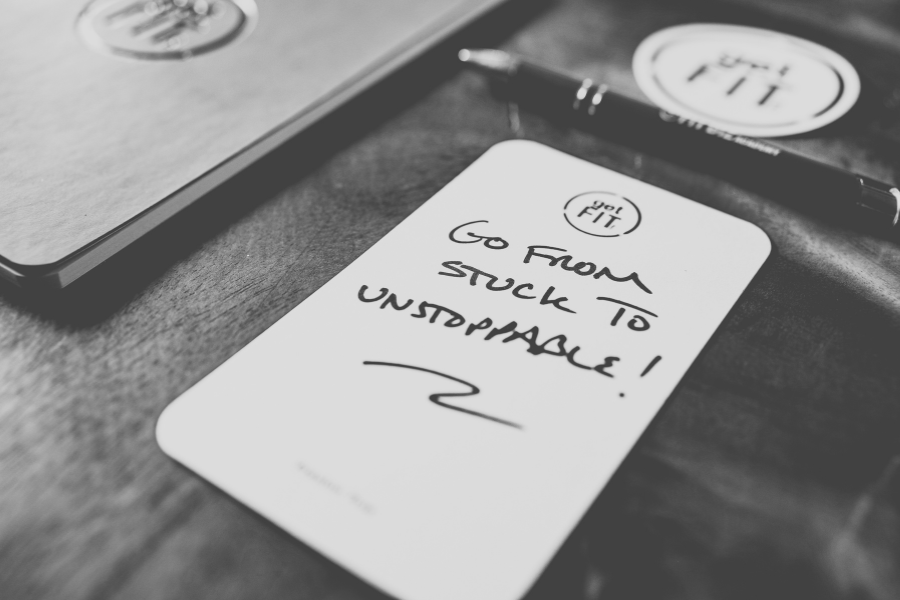 got
FIT
got
FIT
GO FROM
STUCK TO
UNSTOPPABLE!